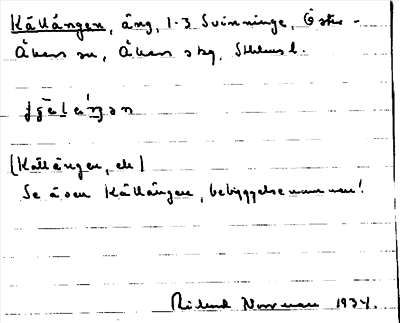 Källängen, äng, 1-3 Svinninge, Öster-
Åkers sn, Åkers skg, Sthlms l.
(Källängen, ek)
Se även Källängen, bebyggelsenamn!
Rikard Norrman 1934.